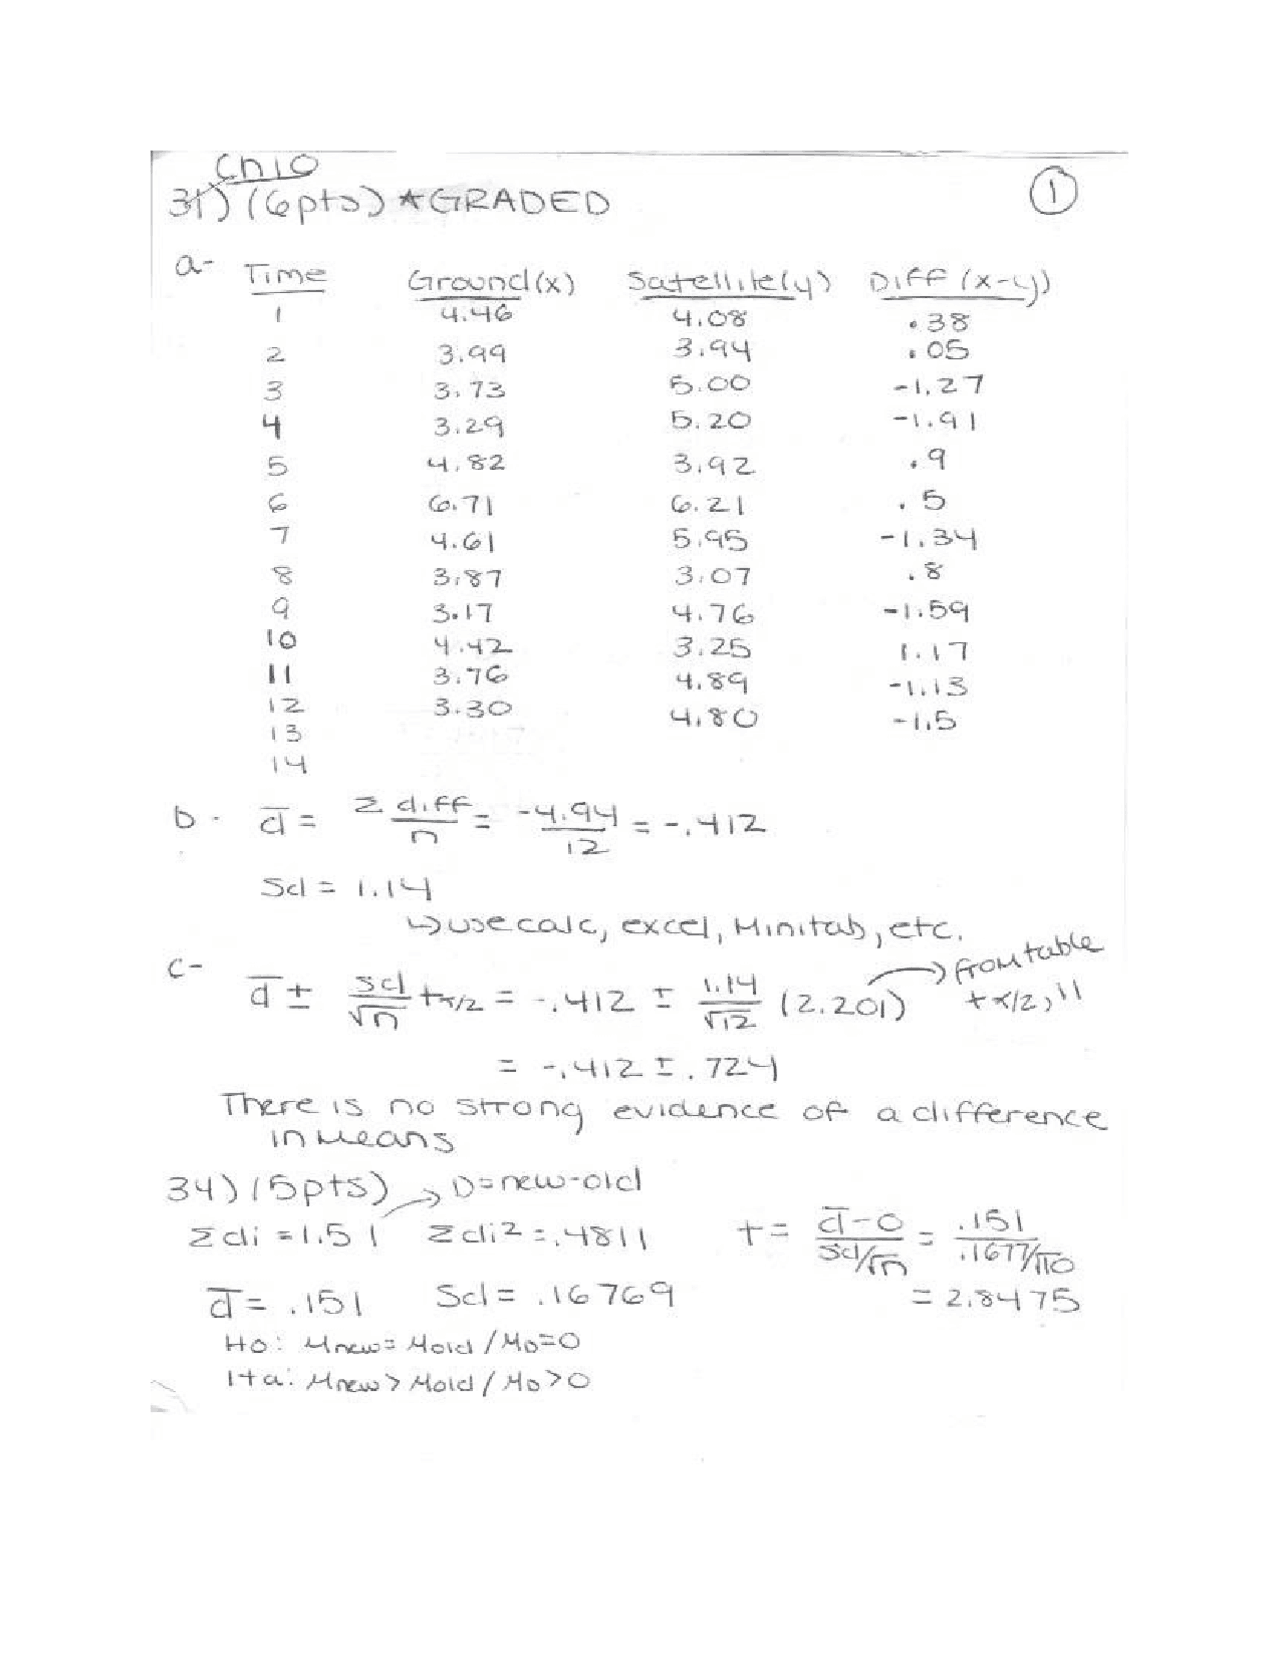 Ch10
31) (6pts) *GRADED
1
a- Time Ground(x) Satellite(y) Diff (x-y)
1 4.46 4.08 .38
2 3.99 3.94 .05
3 3.73 5.00 -1.27
4 3.29 5.20 -1.91
5 4.82 3.92 .9
6 6.71 6.21 .5
7 4.61 5.95 -1.34
8 3.87 3.07 .8
9 3.17 4.76 -1.59
10 4.42 3.25 1.17
11 3.76 4.89 -1.13
12 3.30 4.80 -1.5
13
14
b. d̄ = Σ diff/n = -4.94/12 = -.412
Sd = 1.14
↳ use calc, excel, Minitab, etc.
c- d̄ ± sd/√n tα/2 = -.412 ± 1.14/√12 (2.201) → from table tα/2, 11
= -.412 ± .724
There is no strong evidence of a difference
in means
34) (5pts) → D=new-old
Σdi = 1.51 Σdi2 = .4811 t = d̄-0/Sd/√n = .151/.1677/√10
d̄ = .151 Sd = .16769 = 2.8475
Ho: μnew = μold / μD=0
Ha: μnew > μold / μD>0